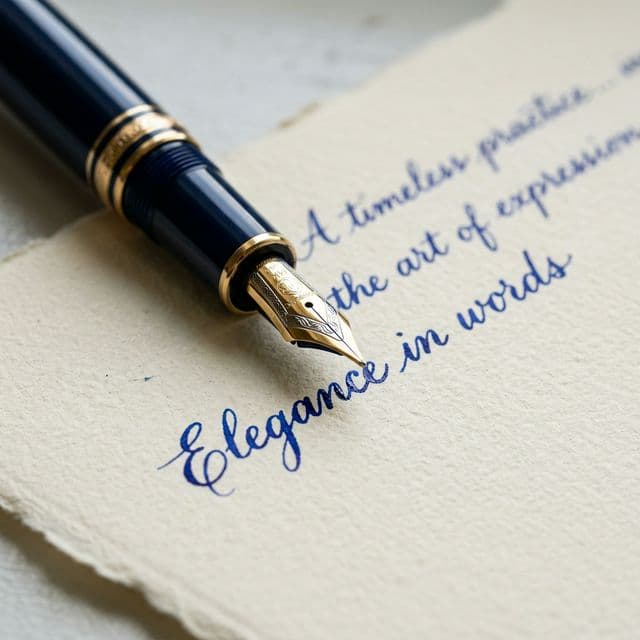 A timeless practice...
the art of expression
Elegance in words